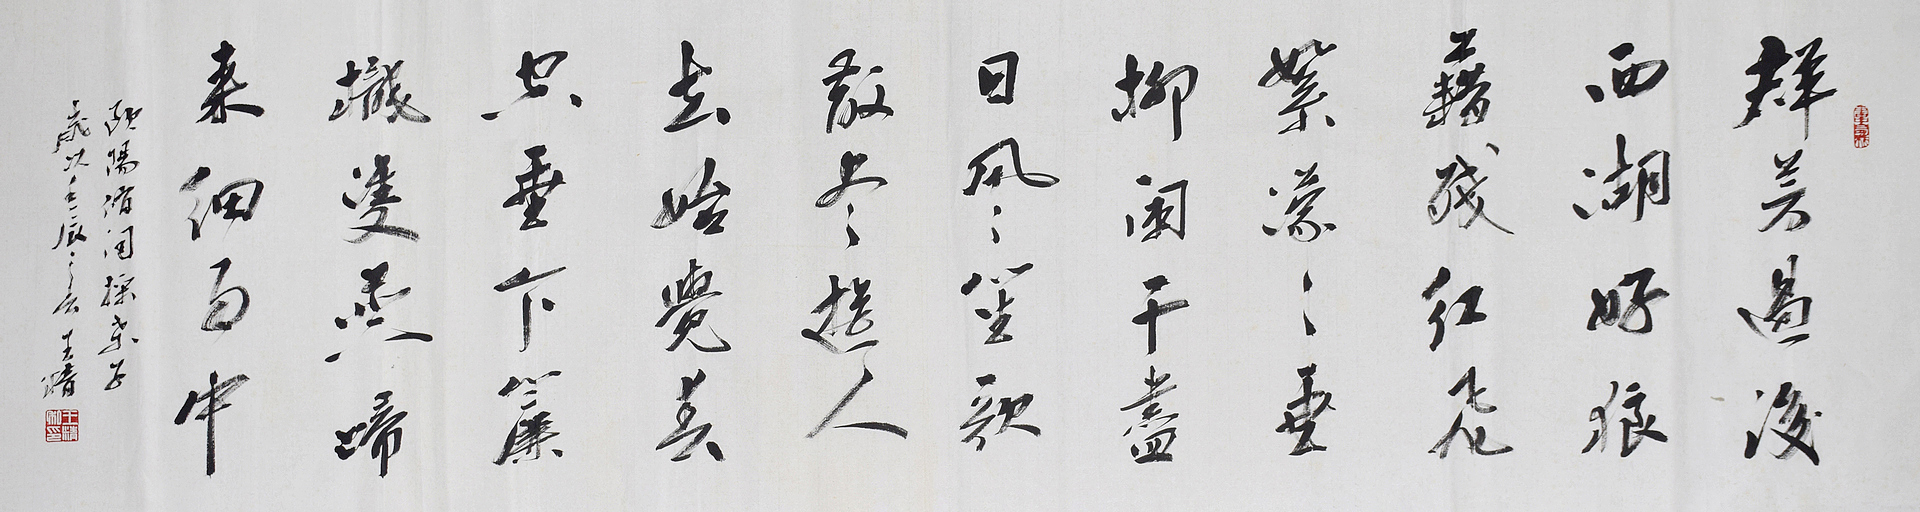 群芳過後
西湖好狼
藉残红飛
絮濛〻垂
柳闌干盡
日風〻笙歌
散尽遊人
去始覺春
空垂下簾
櫳雙燕歸
来细雨中
歐陽脩詞採桑子
歲次壬辰之春 王